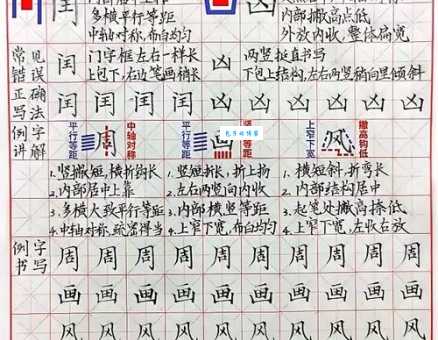 闰 多横平行等距 凶 内部撇高点低
中轴对称,布白均匀 外放内收,整体扁宽
常见错误 闰 门字框左右一样长 凶 两竖挺直书写
上包下,右边笔画稍长 下包上结构,左右两竖稍向里倾斜
正确写法 闰 闰 闰 闰 凶 凶 凶 凶
例字讲解 平行等距 周 中轴对称 平行等距 画 上窄下宽 风 撇高钩低
1.竖撇短,横折钩长 1.竖短折长,折上扬 1.横短斜,折弯长
2.内部居中上靠 2.左右两竖向内收 2.内部结构居中
3.多横大致平行等距 3.内部横竖等距 3.起笔处撇高捺低
4.中轴对称,疏密得当 4.上窄下宽,布白均匀 4.上窄下宽,左收右放
例字书写 周 周 周 周 周 周 周 周 周
画 画 画 画 画 画 画 画 画
风 风 风 风 风 风 风 风 风